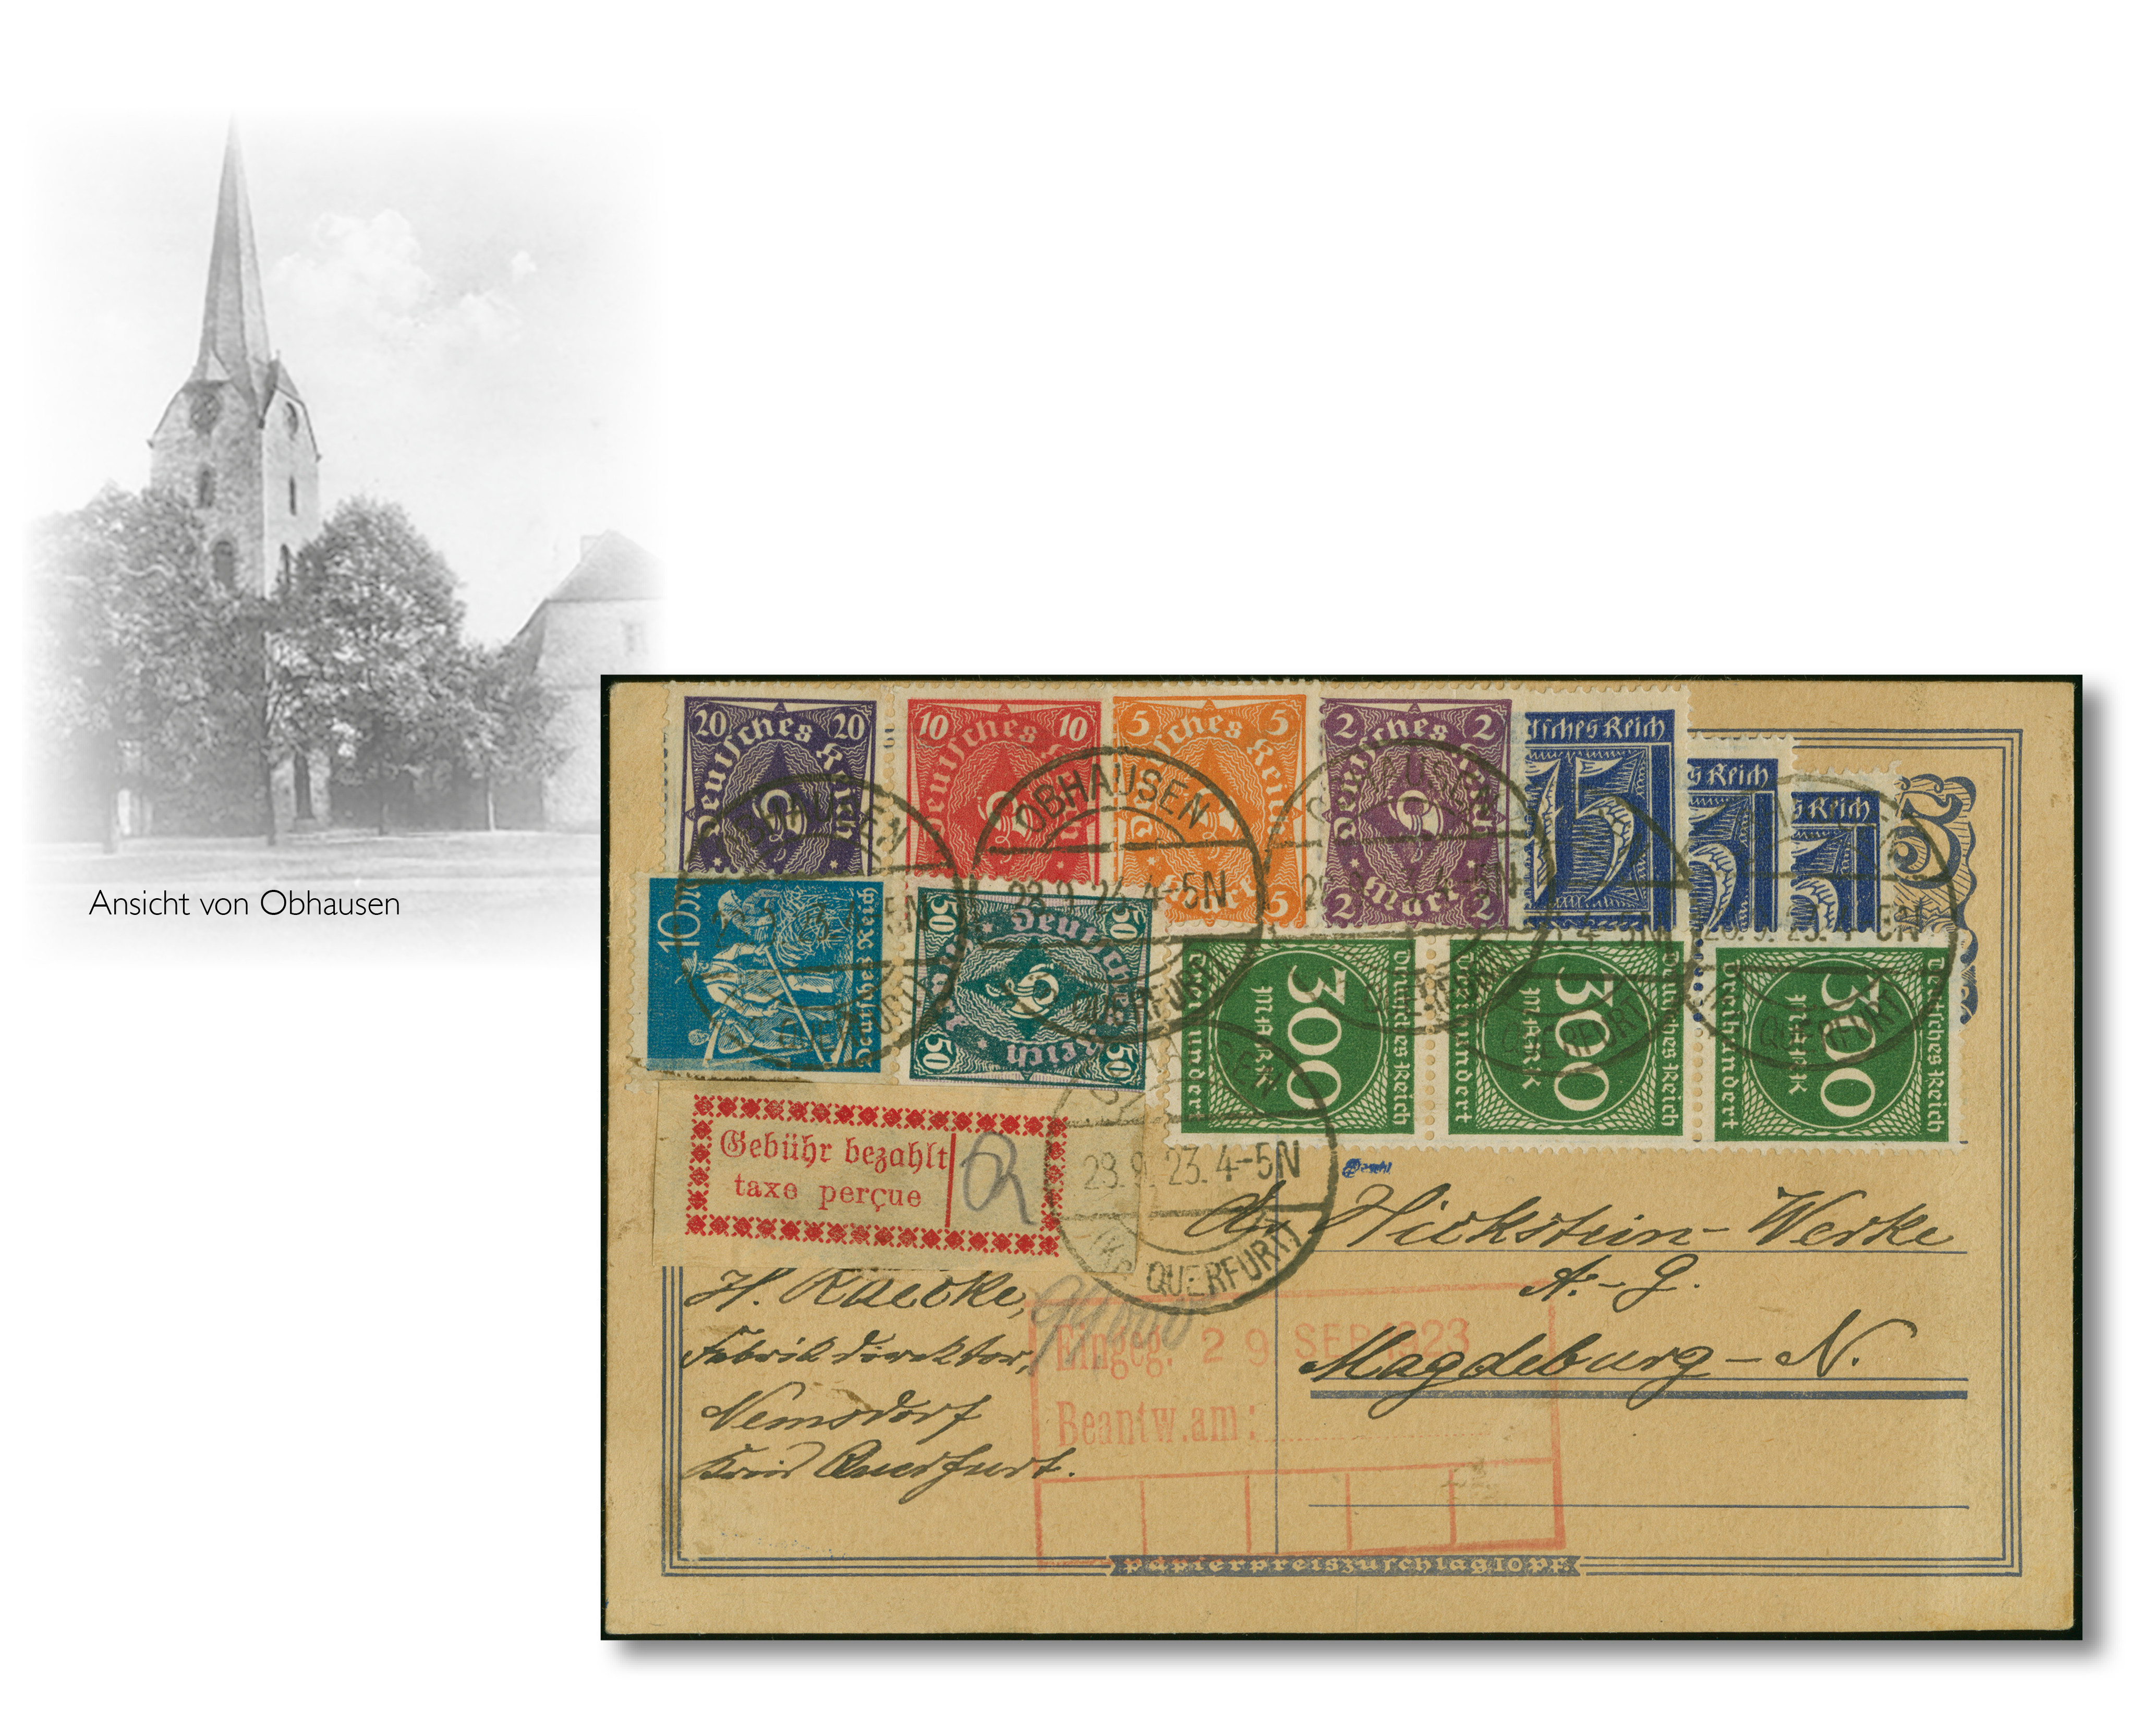 Ansicht von Obhausen
20 20
Deutsches Reich
10 10
Deutsches Reich
5 5
Deutsches Reich
Mark
5
2 2
Deutsches Reich
2 Mark 2
Deutsches Reich
15
Reich
15
Reich
15
10 M
Deutsches Reich
50 50
Deutsches Reich
50 50
Deutsches Reich
300
MARK
Dreihundert
Deutsches Reich
300
MARK
Dreihundert
Deutsches Reich
300
MARK
Dreihundert
OBHAUSEN
28.9.23.4-5N
QUERFURT
Gebühr bezahlt
taxe perçue
28.9.23.4-5N
QUERFURT
Werke
A.-G.
Magdeburg-N.
H. Raecke,
Fabrikdirektor,
Nemsdorf
Kreis Querfurt.
Eingeg. 29 SEP 1923
Beantw.am:
Papierpreiszuschlag 10 Pf.